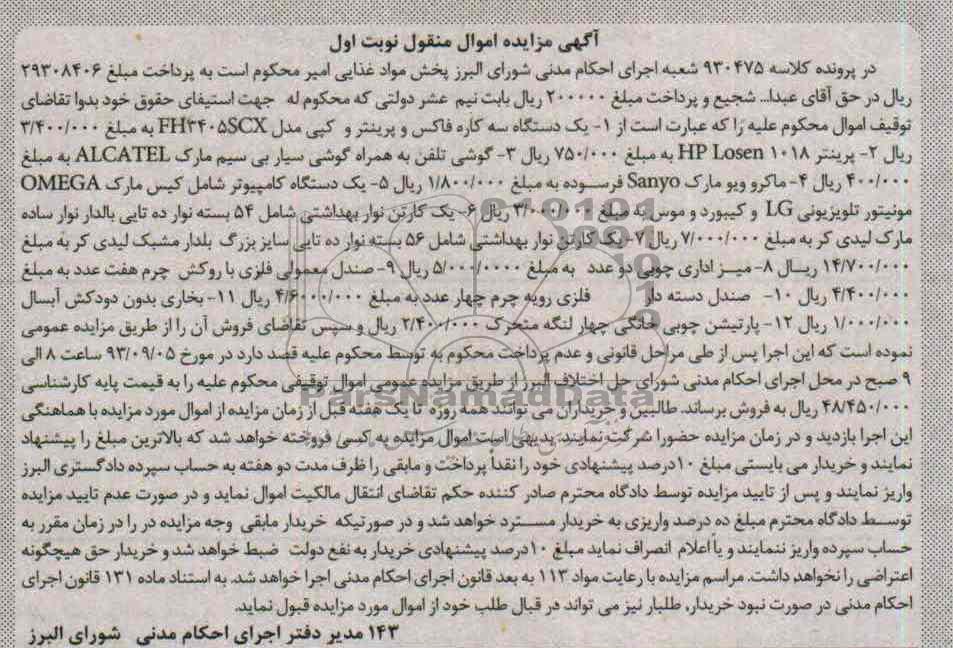 آگهی مزایده اموال منقول نوبت اول
در پرونده کلاسه ۹۳۰۴۷۵ شعبه اجرای احکام مدنی شورای البرز پخش مواد غذایی امیر محکوم است به پرداخت مبلغ ۲۹۳۰۸۴۰۶
ریال در حق آقای عبدا... شجیع و پرداخت مبلغ ۲۰۰۰۰۰ ریال بابت نیم عشر دولتی که محکوم له جهت استیفای حقوق خود بدوا تقاضای
توقیف اموال محکوم علیه را که عبارت است از ۱- یک دستگاه سه کاره فاکس و پرینتر و کپی مدل FH۳۴۰۵SCX به مبلغ ۳/۴۰۰/۰۰۰
ریال ۲- پرینتر HP Losen ۱۰۱۸ به مبلغ ۷۵۰/۰۰۰ ریال ۳- گوشی تلفن به همراه گوشی سیار بی سیم مارک ALCATEL به مبلغ
۴۰۰/۰۰۰ ریال ۴- ماکرو ویو مارک Sanyo فرسوده به مبلغ ۱/۸۰۰/۰۰۰ ریال ۵- یک دستگاه کامپیوتر شامل کیس مارک OMEGA
مونیتور تلویزیونی LG و کیبورد و موس به مبلغ ۳/۰۰۰/۰۰۰ ریال ۶- یک کارتن نوار بهداشتی شامل ۵۴ بسته نوار ده تایی بالدار نوار ساده
مارک لیدی کر به مبلغ ۷/۰۰۰/۰۰۰ ریال ۷- یک کارتن نوار بهداشتی شامل ۵۶ بسته نوار ده تایی سایز بزرگ بلدار مشبک لیدی کر به مبلغ
۱۴/۷۰۰/۰۰۰ ریال ۸- میز اداری چوبی دو عدد به مبلغ ۵/۰۰۰/۰۰۰۰ ریال ۹- صندل معمولی فلزی با روکش چرم هفت عدد به مبلغ
۴/۴۰۰/۰۰۰ ریال ۱۰- صندل دسته دار فلزی رویه چرم چهار عدد به مبلغ ۴/۶۰۰۰/۰۰۰ ریال ۱۱- بخاری بدون دودکش آبسال
۱/۰۰۰/۰۰۰ ریال ۱۲- پارتیشن چوبی خانگی چهار لنگه متحرک ۲/۴۰۰/۰۰۰ ریال و سپس تقاضای فروش آن را از طریق مزایده عمومی
نموده است که این اجرا پس از طی مراحل قانونی و عدم پرداخت محکوم به توسط محکوم علیه قصد دارد در مورخ ۹۳/۰۹/۰۵ ساعت ۸ الی
۹ صبح در محل اجرای احکام مدنی شورای حل اختلاف البرز از طریق مزایده عمومی اموال توقیفی محکوم علیه را به قیمت پایه کارشناسی
۴۸/۴۵۰/۰۰۰ ریال به فروش برساند. طالبین و خریداران می توانند همه روزه تا یک هفته قبل از زمان مزایده از اموال مورد مزایده با هماهنگی
این اجرا بازدید و در زمان مزایده حضورا شرکت نمایند. بدیهی است اموال مزایده به کسی فروخته خواهد شد که بالاترین مبلغ را پیشنهاد
نمایند و خریدار می بایستی مبلغ ۱۰درصد پیشنهادی خود را نقداً پرداخت و مابقی را ظرف مدت دو هفته به حساب سپرده دادگستری البرز
واریز نمایند و پس از تایید مزایده توسط دادگاه محترم صادر کننده حکم تقاضای انتقال مالکیت اموال نماید و در صورت عدم تایید مزایده
توسط دادگاه محترم مبلغ ده درصد واریزی به خریدار مسترد خواهد شد و در صورتیکه خریدار مابقی وجه مزایده در را در زمان مقرر به
حساب سپرده واریز ننمایند و یا اعلام انصراف نماید مبلغ ۱۰درصد پیشنهادی خریدار به نفع دولت ضبط خواهد شد و خریدار حق هیچگونه
اعتراضی را نخواهد داشت. مراسم مزایده با رعایت مواد ۱۱۳ به بعد قانون اجرای احکام مدنی اجرا خواهد شد. به استناد ماده ۱۳۱ قانون اجرای
احکام مدنی در صورت نبود خریدار، طلبار نیز می تواند در قبال طلب خود از اموال مورد مزایده قبول نماید.
۱۴۳ مدیر دفتر اجرای احکام مدنی شورای البرز
ParsNamadData